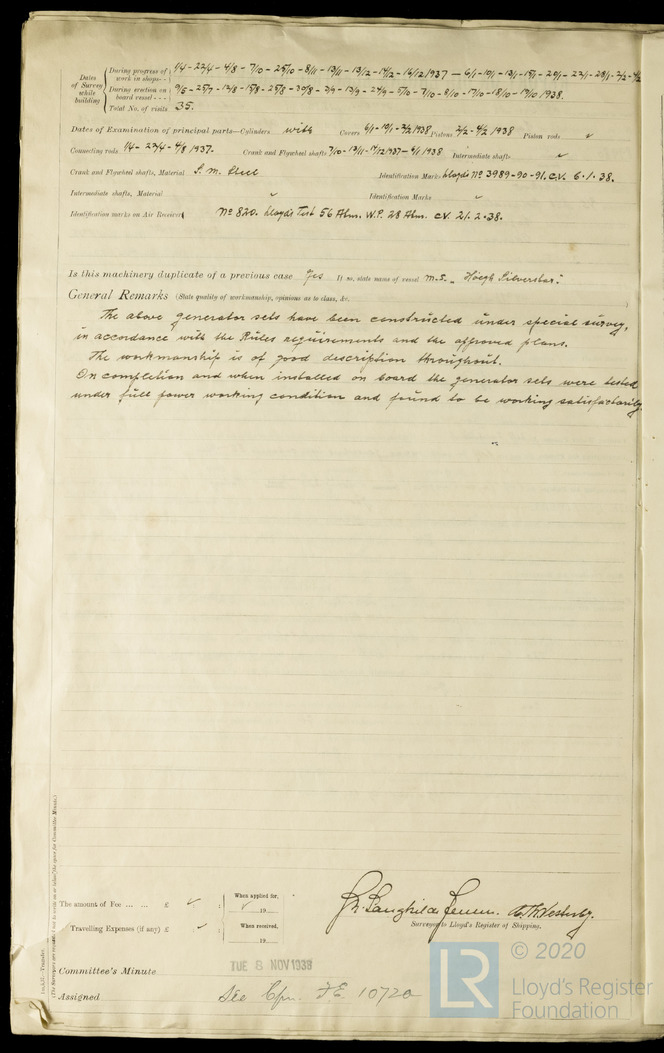 Dates of Survey while building
During progress of work in shops - - 1/4 - 22/4 - 4/8 - 7/10 - 25/10 - 8/11 - 13/11 - 13/12 - 14/12 - 16/12 1937 — 6/1 - 10/1 - 13/1 - 15/1 - 20/1 - 22/1 - 28/1 - 2/2 - 4/2
During erection on board vessel - - - 9/5 - 25/7 - 12/8 - 15/8 - 25/8 - 30/8 - 2/9 - 13/9 - 24/9 - 5/10 - 7/10 - 8/10 - 17/10 - 18/10 - 19/10 1938.
Total No. of visits 35.
Dates of Examination of principal parts—Cylinders with Covers 6/1 - 10/1 - 2/2 1938 Pistons 2/2 - 4/2 1938 Piston rods
Connecting rods 1/4 - 22/4 - 4/8 1937. Crank and Flywheel shafts 7/10 - 13/11 - 17/12 1937 - 6/1 1938 Intermediate shafts
Crank and Flywheel shafts, Material S. M. Steel Identification Marks Lloyd's No 3989-90-91. C.V. 6.1.38.
Intermediate shafts, Material Identification Marks
Identification marks on Air Receivers No 820. Lloyd's Test 56 Atm. W.P. 28 Atm. C.V. 21.2.38.
Is this machinery duplicate of a previous case Yes If so, state name of vessel M.S. „ Höegh Silverstar."
General Remarks (State quality of workmanship, opinions as to class, &c.
The above generator sets have been constructed under special survey,
in accordance with the Rules requirements and the approved plans.
The workmanship is of good description throughout.
On completion and when installed on board the generator sets were tested
under full power working condition and found to be working satisfactorily.
The amount of Fee ... ... £ : When applied for,
19
Travelling Expenses (if any) £ : When received,
19
Surveyor to Lloyd's Register of Shipping.
Committee's Minute TUE 8 NOV 1938
Assigned See Cpn. F.E. 10720
(The Surveyors are requested not to write on or below the space for Committee Minute.)
LR
© 2020
Lloyd's Register
Foundation